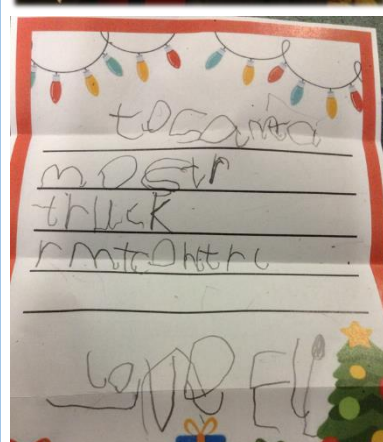 to santa
mostr
truck
rmtcontrl
Love Eli